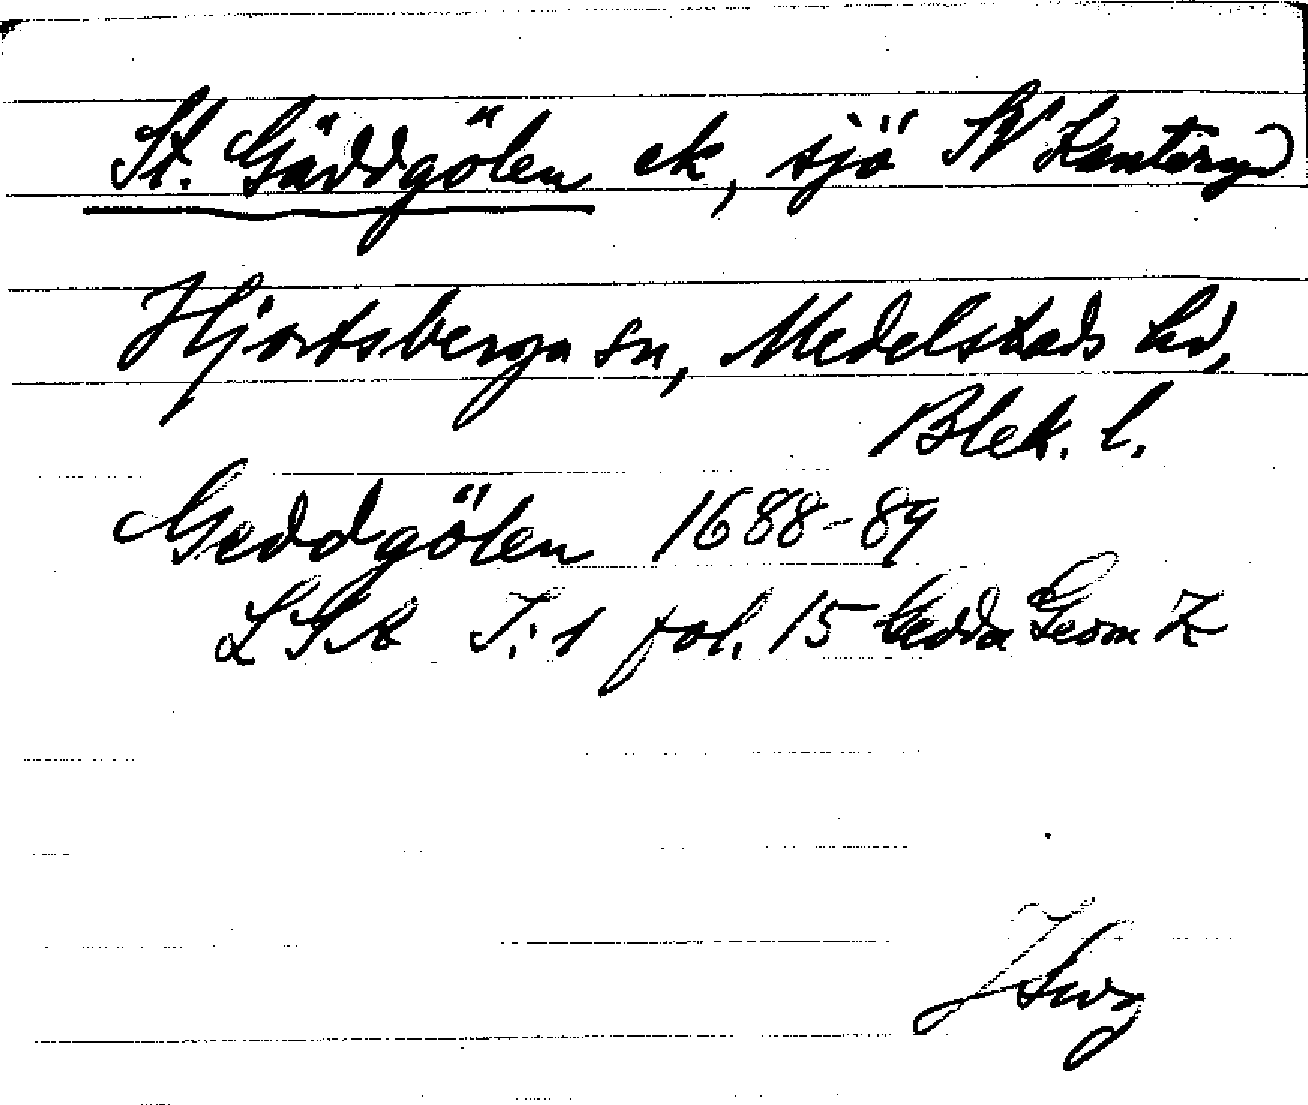 St. Gäddgölen ek, sjö SV Kanteryd
Hjortsberga sn, Medelstads hd,
Blek. l.
Geddgölen 1688-89
LSA I:1 fol. 15 Gedda Geom K